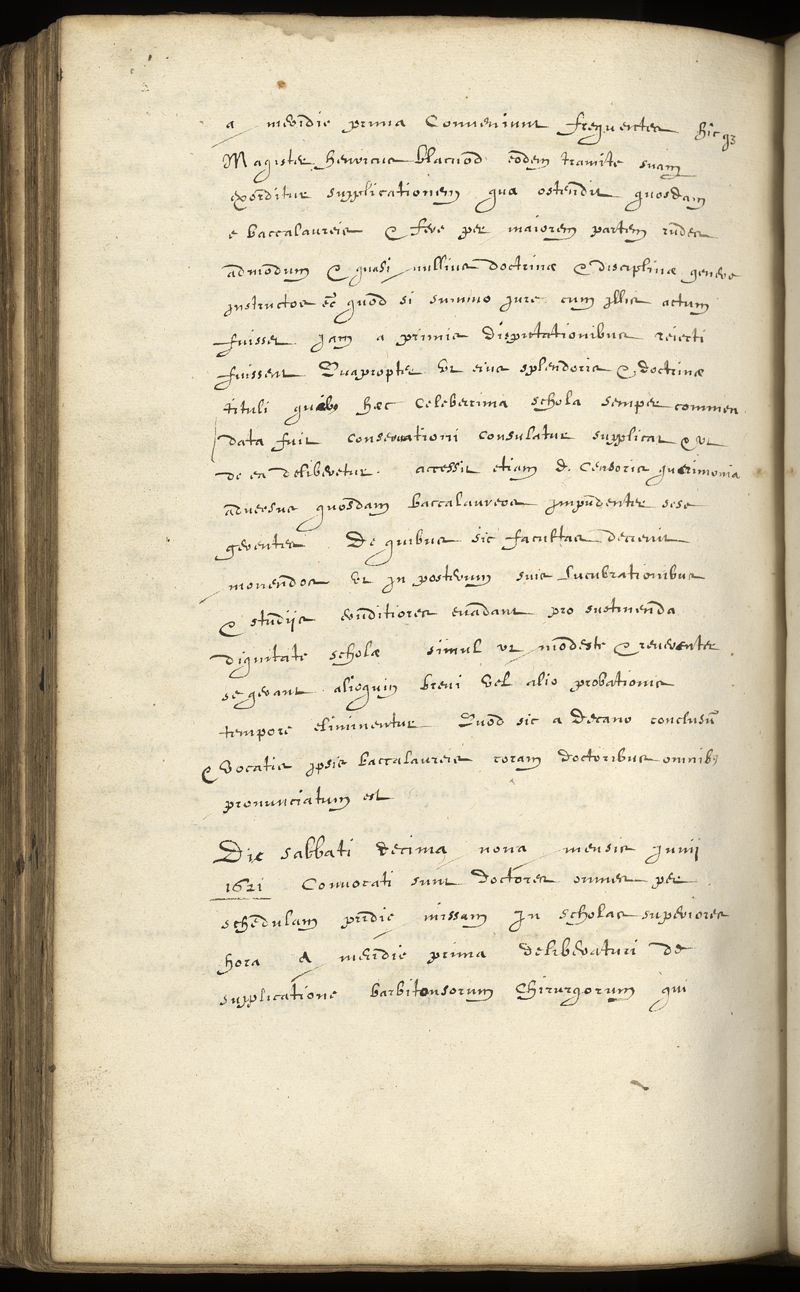 a meridie prima Conveniunt frequentes hicq3
Magister henricus blacuod eodem tramite suam
exorditur supplicationem qua ostendit quosdam
e baccalaureis & fere per maiorem partem rudes
admodum & quasi nullius doctrinæ & disciplinæ genere
instructos &c quod si summo jure cum illis actum
fuisset jam a primis disputationibus reiecti
fuissent Quapropter ut eius splendoris & doctrinæ
tituli quibs hæc Celeberrima schola semper commen
data fuit conservationi consulatur supplicat & ut
de ea deliberetur. accessit etiam d. Censoris querimonia
adversus quosdam baccalaureos impudenter sese
gerentes De quibus sic facultas decrevit
monendos ut in posterum suis lucubrationibus
& studiis eruditiores evadant pro sustinenda
dignitate scholæ simul ut modeste & reverenter
se gerant alioquin brevi vel alio probationis
tempore eliminentur Quod sic a Decano conclusũ
& Vocatis ipsis baccalaureis coram doctoribus omnib9
pronunciatum est
Die sabbati decima nona mensis junij
1621 Convocati sunt doctores omnes per
schedulam pridie missam in scholas superiores
hora a meridie prima deliberaturi de
supplicatione barbitonsorum Chirurgorum qui